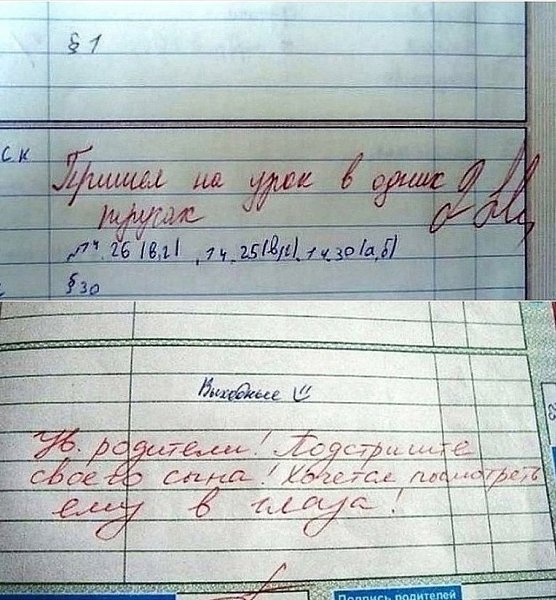 § 1
ск
Пришел на урок в одних
трусах
№14.26(в,г), 14.25(в,г), 14.30(а,б)
§30
Выходные
Ув. родители! Подстригите
своего сына! Хочется посмотреть
ему в глаза!
Подпись родителей